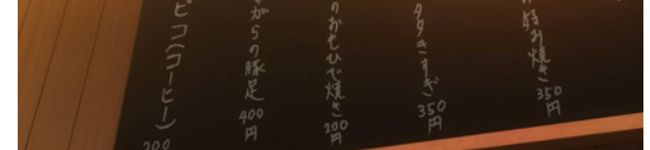 好み焼き 350円
タタきすぎ 350円
のおもひで焼き 200円
がらの豚足 400円
ピコ(コーヒー) 200